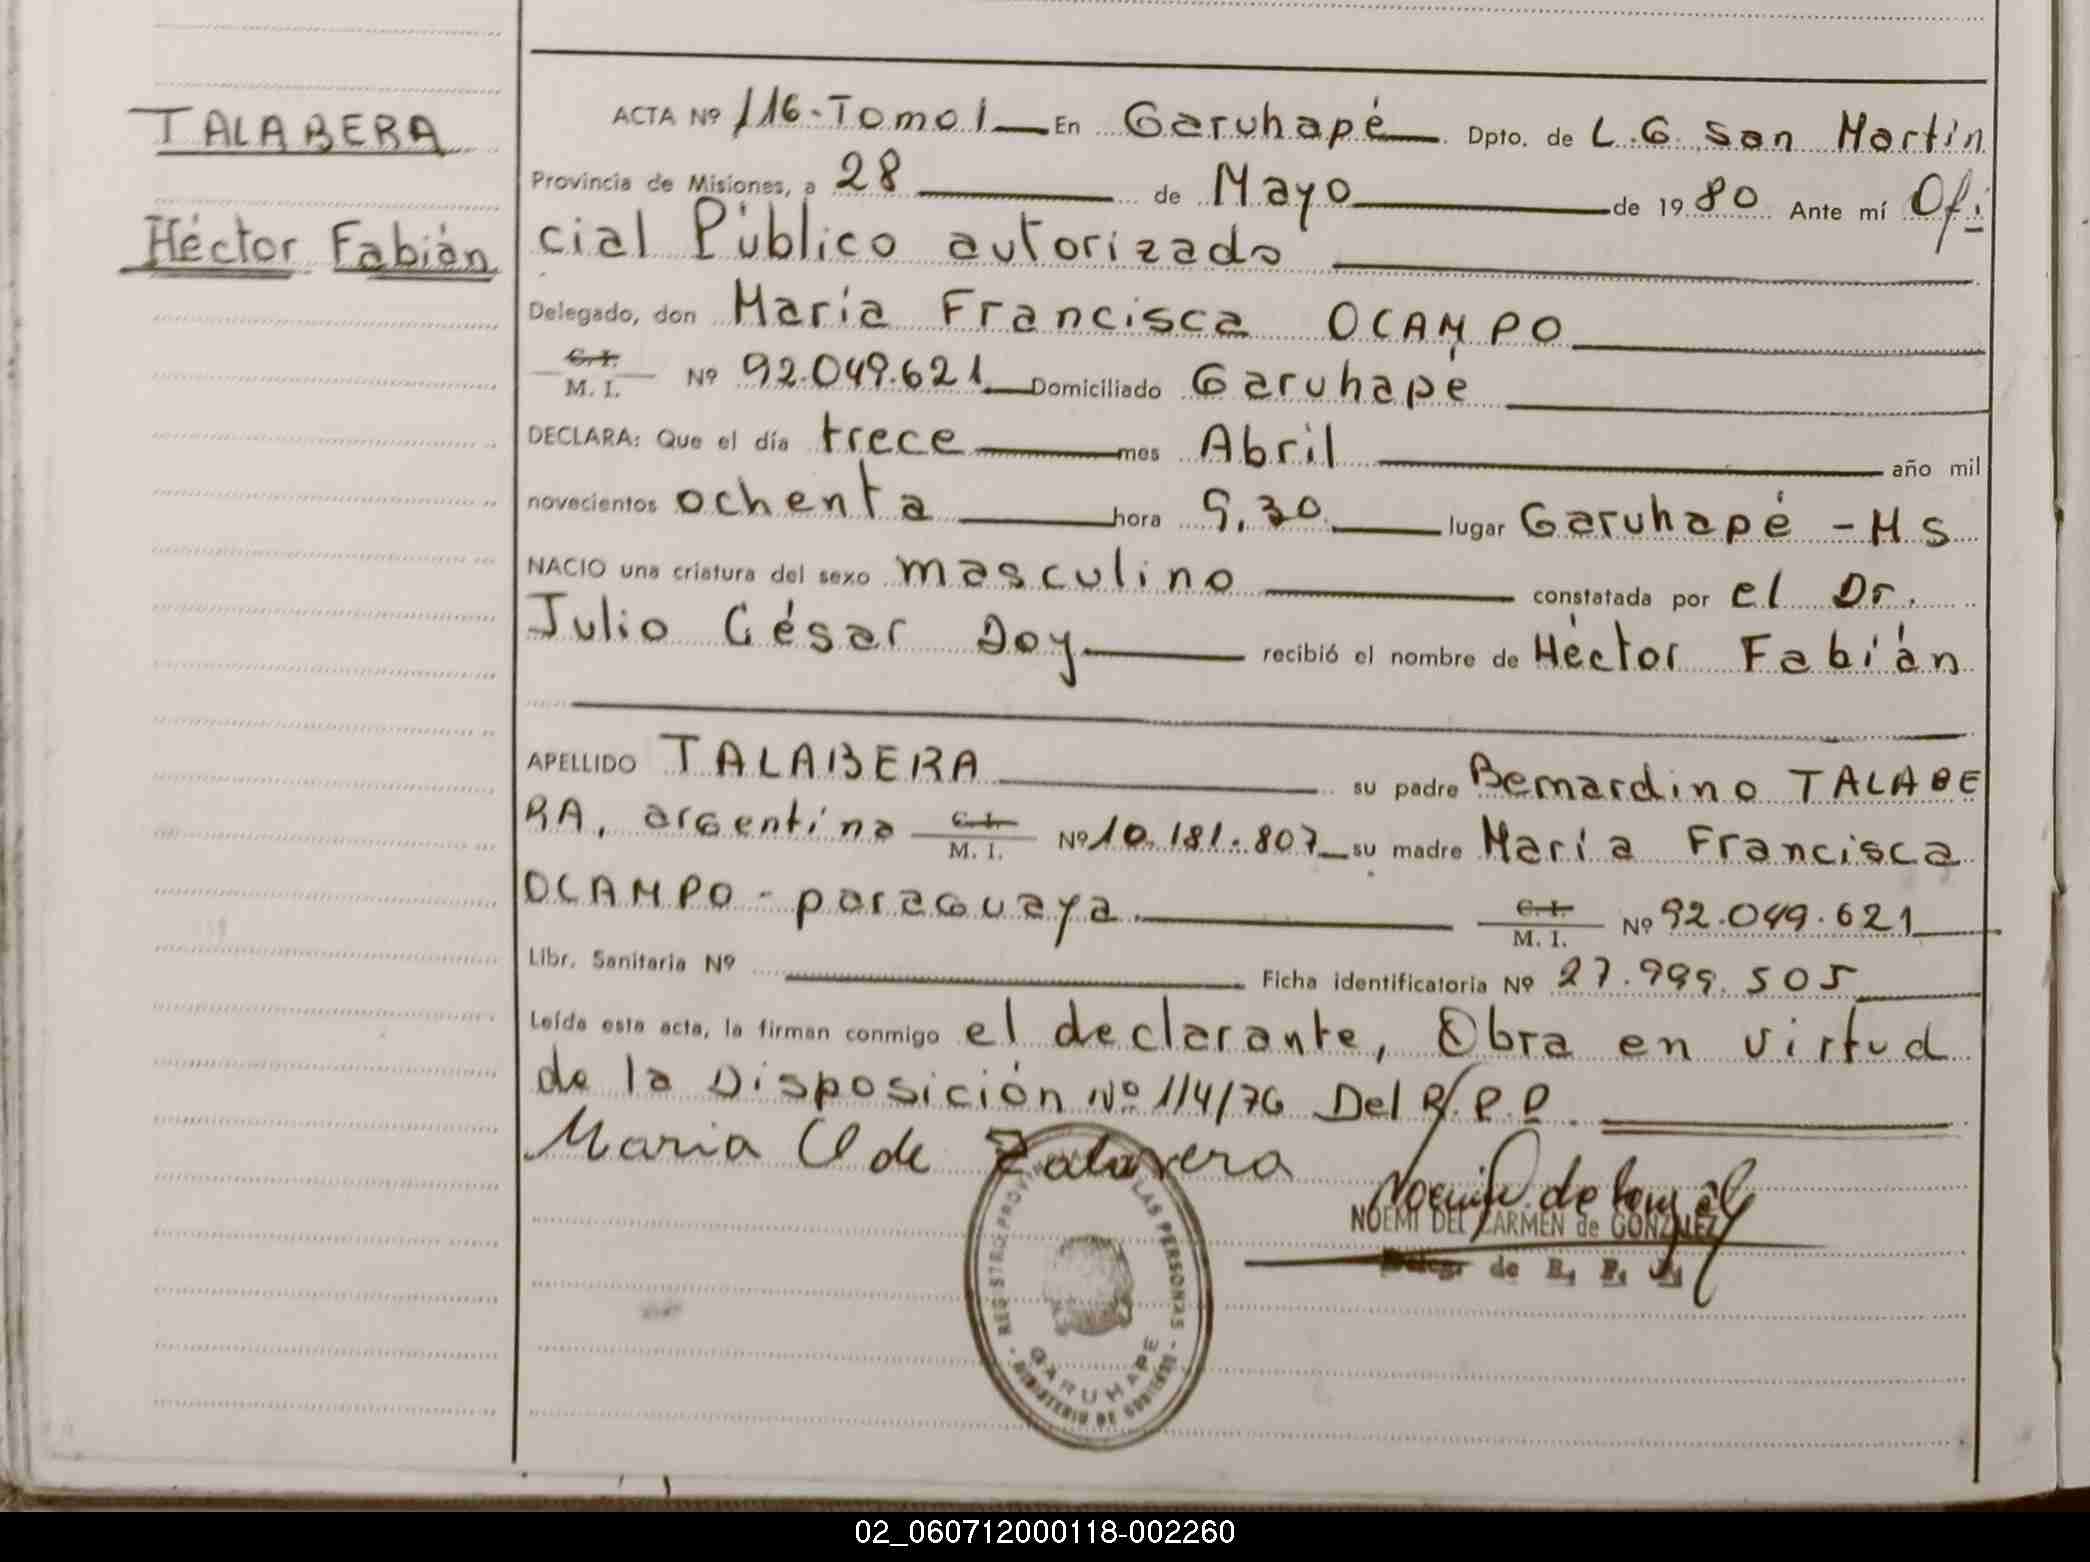 TALABERA
Héctor Fabián
ACTA Nº 116-Tomo I En Garuhapé Dpto. de L.G. San Martín
Provincia de Misiones, a 28 de Mayo de 1980 Ante mí Ofi
cial Público autorizado
Delegado, don María Francisca OCAMPO
C.I.
M. I. Nº 92.049.621 Domiciliado Garuhapé
DECLARA: Que el día trece mes Abril año mil
novecientos ochenta hora 9,30 lugar Garuhapé - Ms
NACIO una criatura del sexo masculino constatada por el Dr.
Julio César Doy recibió el nombre de Héctor Fabián
APELLIDO TALABERA su padre Bernardino TALABE
RA, argentino C.I. M. I. Nº 10.181.807 su madre María Francisca
OCAMPO - paraguaya C.I. M. I. Nº 92.049.621
Libr. Sanitaria Nº Ficha identificatoria Nº 27.999.505
Leída esta acta, la firman conmigo el declarante, Obra en virtud
de la Disposición Nº 114/76 Del R.P.P.
Maria O de Talavera
NOEMI DEL CARMEN de GONZALEZ
de R. P. P.
REGISTRO PROVINCIAL DE LAS PERSONAS
GARUHAPE
- MINISTERIO DE GOBIERNO -
02_060712000118-002260